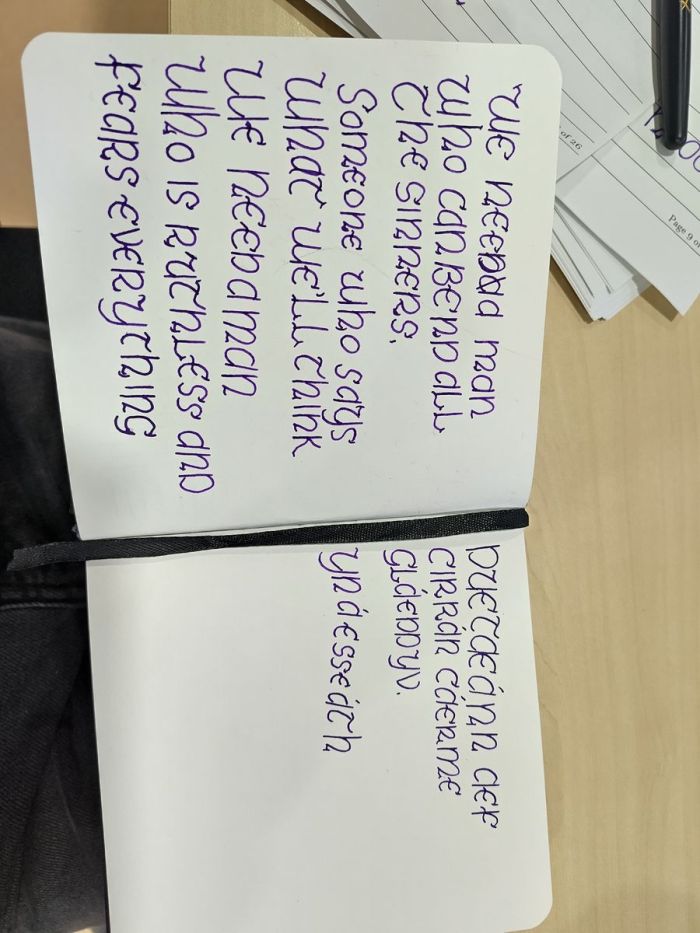 WE NEEDA MAN
WHO CANBEND ALL
THE SINNERS.
SOMEONE WHO SAYS
WHAT WE'LL THINK
WE NEED A MAN
WHO IS RUTHLESS AND
FEARS EVERYTHING
DUETAEÁNN AEF
CIRRÁN CÁERME
GLÁEDDYV.
YN Á ESSEÁTH
of 26
Page 9